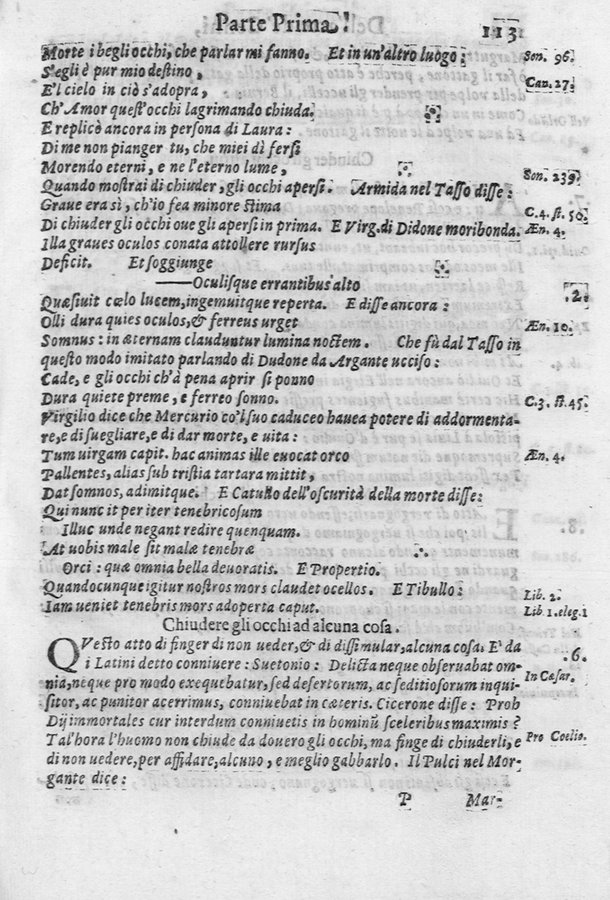 Parte Prima. 113
Morte i begli occhi, che parlar mi fanno. Et in un'altro luogo: Son. 96.
S'egli è pur mio destino,
E'l cielo in ciò s'adopra, Can. 27.
Ch'Amor quest'occhi lagrimando chiuda.
E replicò ancora in persona di Laura:
Di me non pianger tu, che miei dì fersi
Morendo eterni, e ne l'eterno lume, Son. 239.
Quando mostrai di chiuder, gli occhi apersi. Armida nel Tasso disse:
Graue era sì, ch'io fea minore stima C. 4. st. 50.
Di chiuder gli occhi oue gli apersi in prima. E Virg. di Didone moribonda. Æn. 4.
Illa graues oculos conata attollere rursus
Deficit. Et soggiunge
——Oculisque errantibus alto
Quæsiuit cœlo lucem, ingemuitque reperta. E disse ancora: 2.
Olli dura quies oculos, & ferreus urget Æn. 10.
Somnus: in æternam clauduntur lumina noctem. Che fù dal Tasso in
questo modo imitato parlando di Dudone da Argante ucciso:
Cade, e gli occhi ch'à pena aprir si ponno
Dura quiete preme, e ferreo sonno. C. 3. st. 45.
Virgilio dice che Mercurio co'l suo caduceo hauea potere di addormenta-
re, e di suegliare, e di dar morte, e uita:
Tum uirgam capit. hac animas ille euocat orco Æn. 4.
Pallentes, alias sub tristia tartara mittit,
Dat somnos, adimitque. E Catullo dell'oscurità della morte disse:
Qui nunc it per iter tenebricosum
Illuc unde negant redire quenquam.
At uobis male sit malæ tenebræ
Orci: quæ omnia bella deuoratis. E Propertio.
Quandocunque igitur nostros mors claudet ocellos. E Tibullo: Lib. 2.
Iam ueniet tenebris mors adoperta caput. Lib. 1. eleg. 1
Chiudere gli occhi ad alcuna cosa.
QVesto atto di finger di non ueder, & di dissimular, alcuna cosa. E' da 6.
i Latini detto conniuere: Suetonio: Delicta neque obseruabat om-
nia, neque pro modo exequebatur, sed desertorum, ac seditiosorum inqui- In Cæsar.
sitor, ac punitor acerrimus, conniuebat in cæteris. Cicerone disse: Proh
Dij immortales cur interdum conniuetis in hominũ sceleribus maximis?
Tal'hora l'huomo non chiude da douero gli occhi, ma finge di chiuderli, e Pro Coelio.
di non uedere, per affidare, alcuno, e meglio gabbarlo. Il Pulci nel Mor-
gante dice:
P Mar-